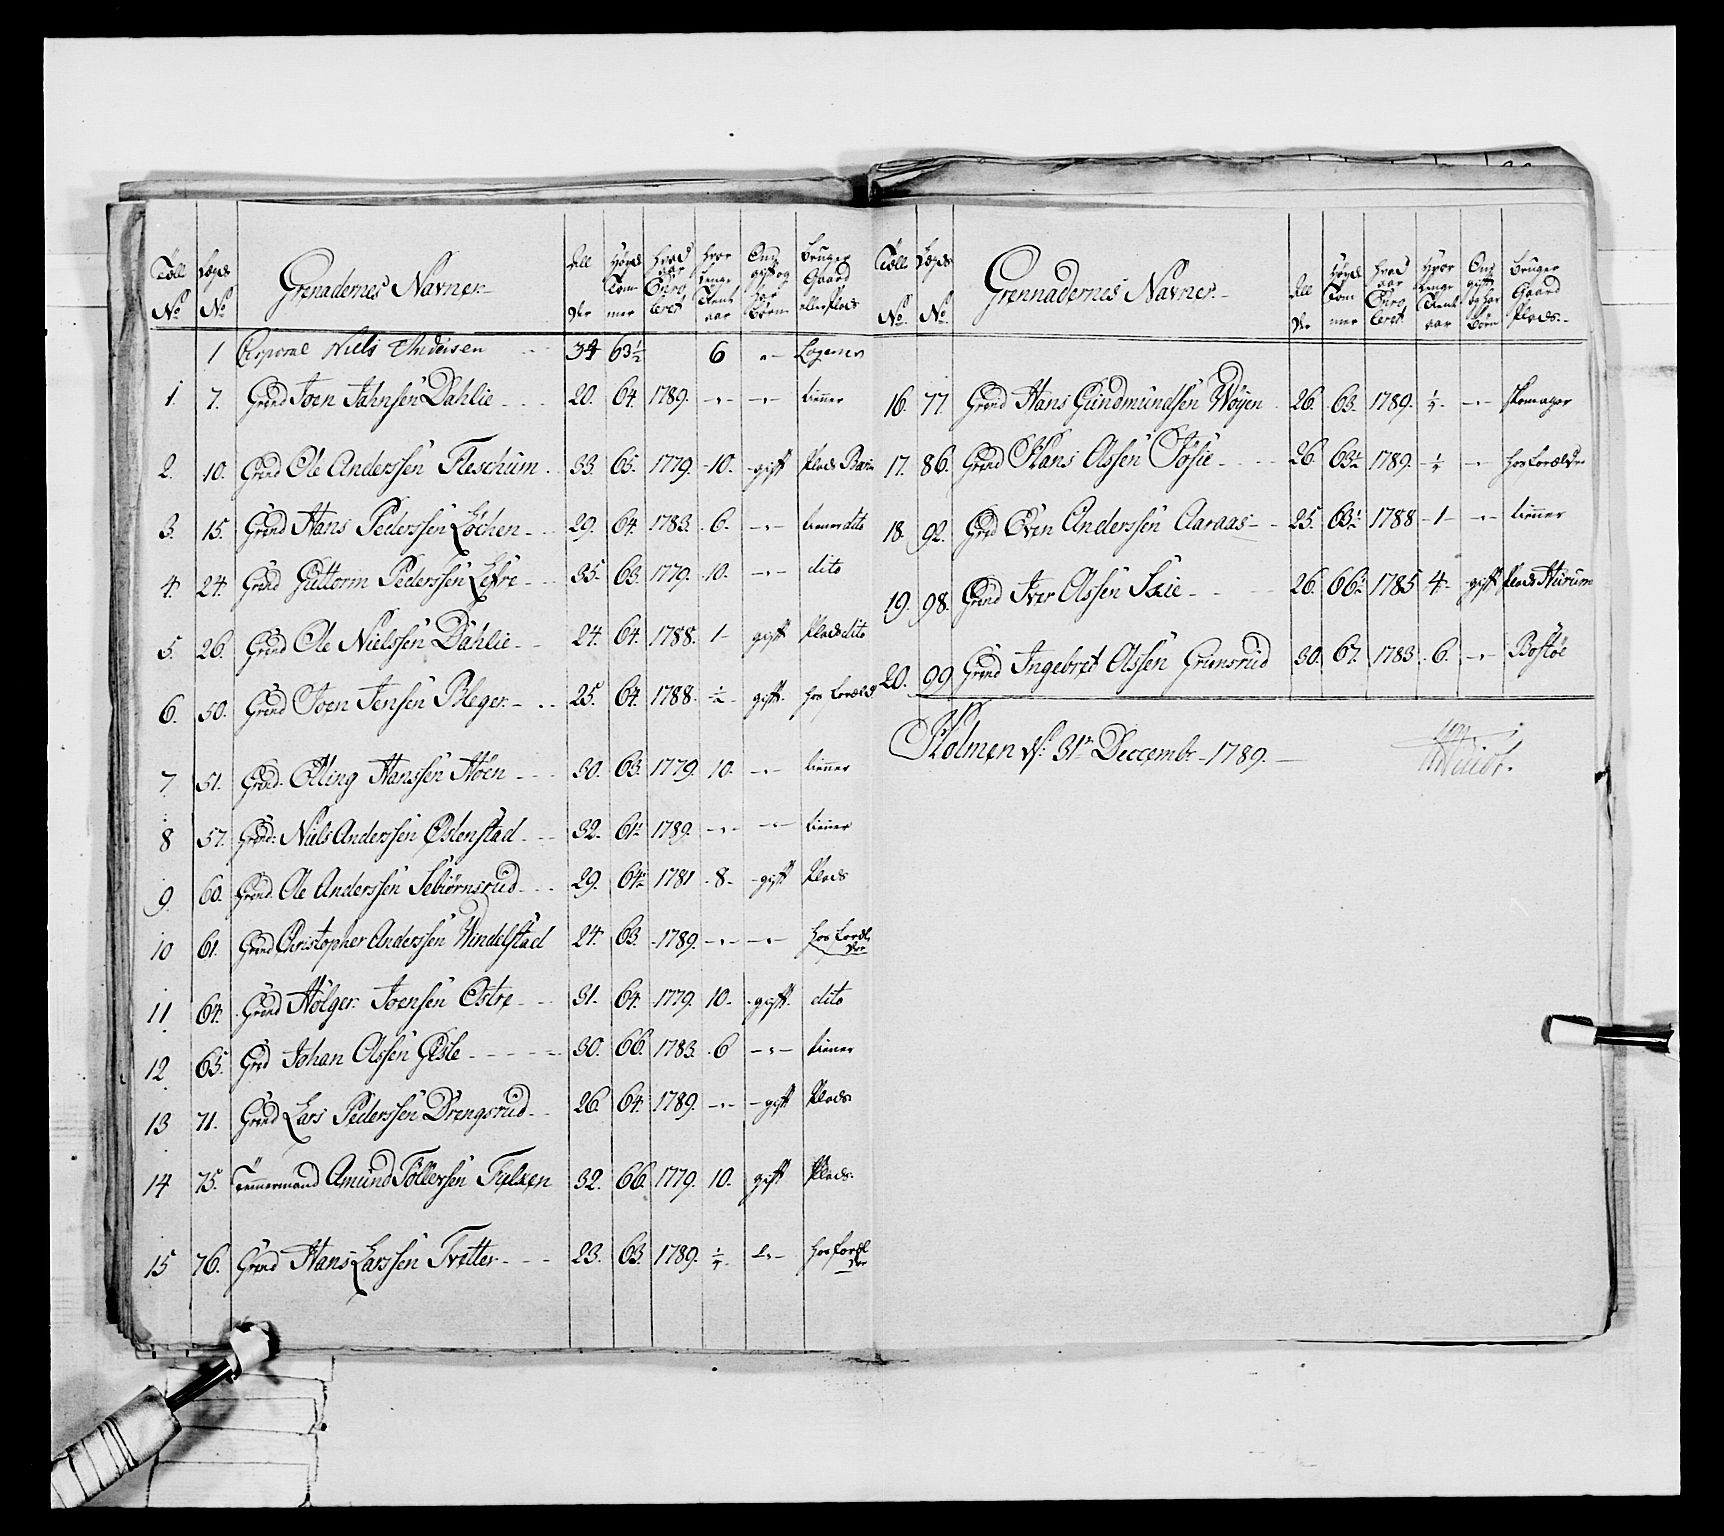 Tall No Lægds No Grenadernes Navner Allder Høyde Tommer hvad aar Enrolleret hvor lenge Tient aar Om gift og har Børn bruger Gaard eller Plads
1 Corporal Niels Andersen 34 63½ 6 - Logerer
1. 7. Grend Joen Jahnsen Dahlie 20. 64. 1789. - - tienner
2. 10. Grend Ole Anderssen Fleschum 33. 65. 1779. 10. gift Plads
3. 15. Grend Hans Pederssen Løchen 29. 64. 1783. 6. - tiener dito
4. 24. Grend Guttorm Pederssen Lefre 35. 63. 1779. 10. - dito
5. 26. Grend Ole Nielssen Dahlie 24. 64. 1788. 1 gift Plads dito
6. 50. Grend Joen Jensen Pleger 25. 64. 1788. ½ gift. hos
7 51. Grend. Elling Hanssen Høen 30. 63. 1779. 10. - tienner
8 57. Grend: Niels Anderssen Østenstad 32. 61½ 1789. - - tienner
9 60. Grend. Ole Anderssen Sebiørnsrud 29. 64½ 1781 8 gift Plads
10 61. Grend Christopher Anderssen Windelstad 24. 63. 1789. - - hos forældrer
11 64. Grend Holger Joensen Østre 31. 64. 1779. 10. gift dito
12 65. Grd Johan Olssen Gisle 30. 66. 1783. 6 - tiener
13 71. Grend Lars Pederssen Drengsrud 26. 64. 1789. - gift Plads
14 75. Temmermand Amund Tollerssen 32. 66. 1779. 10. gift Plads.
15 76. Grend Hans Larssen Tvetter 23. 63. 1789. ¼ - hos forældrer
Tall No. Lægds No. Grennadernes Navner Allder Høyde Tommer hvad aar Enrolleret Hvor Lenge Tient aar Om gift og har Børn bruger Gaard Plads
16. 77 Grend Hans Gundmundsen Wøyen 26. 63. 1789. ¼ - skomager
17. 86. Grend Hans Olssen Tofsie 26. 63½ 1789. ¼ - hos forældre
18. 92. Grd Even Anderssen Aaraas 25. 63½ 1788 1 - tienner
19. 98. Grend Iver Olssen 26. 66½ 1785 4 gift Plads Hurum
20. 99 Grend Ingebret Olssen Griensrud 30. 67. 1783. 6. - Bostøe
Holmen d: 31te Decembr 1789.